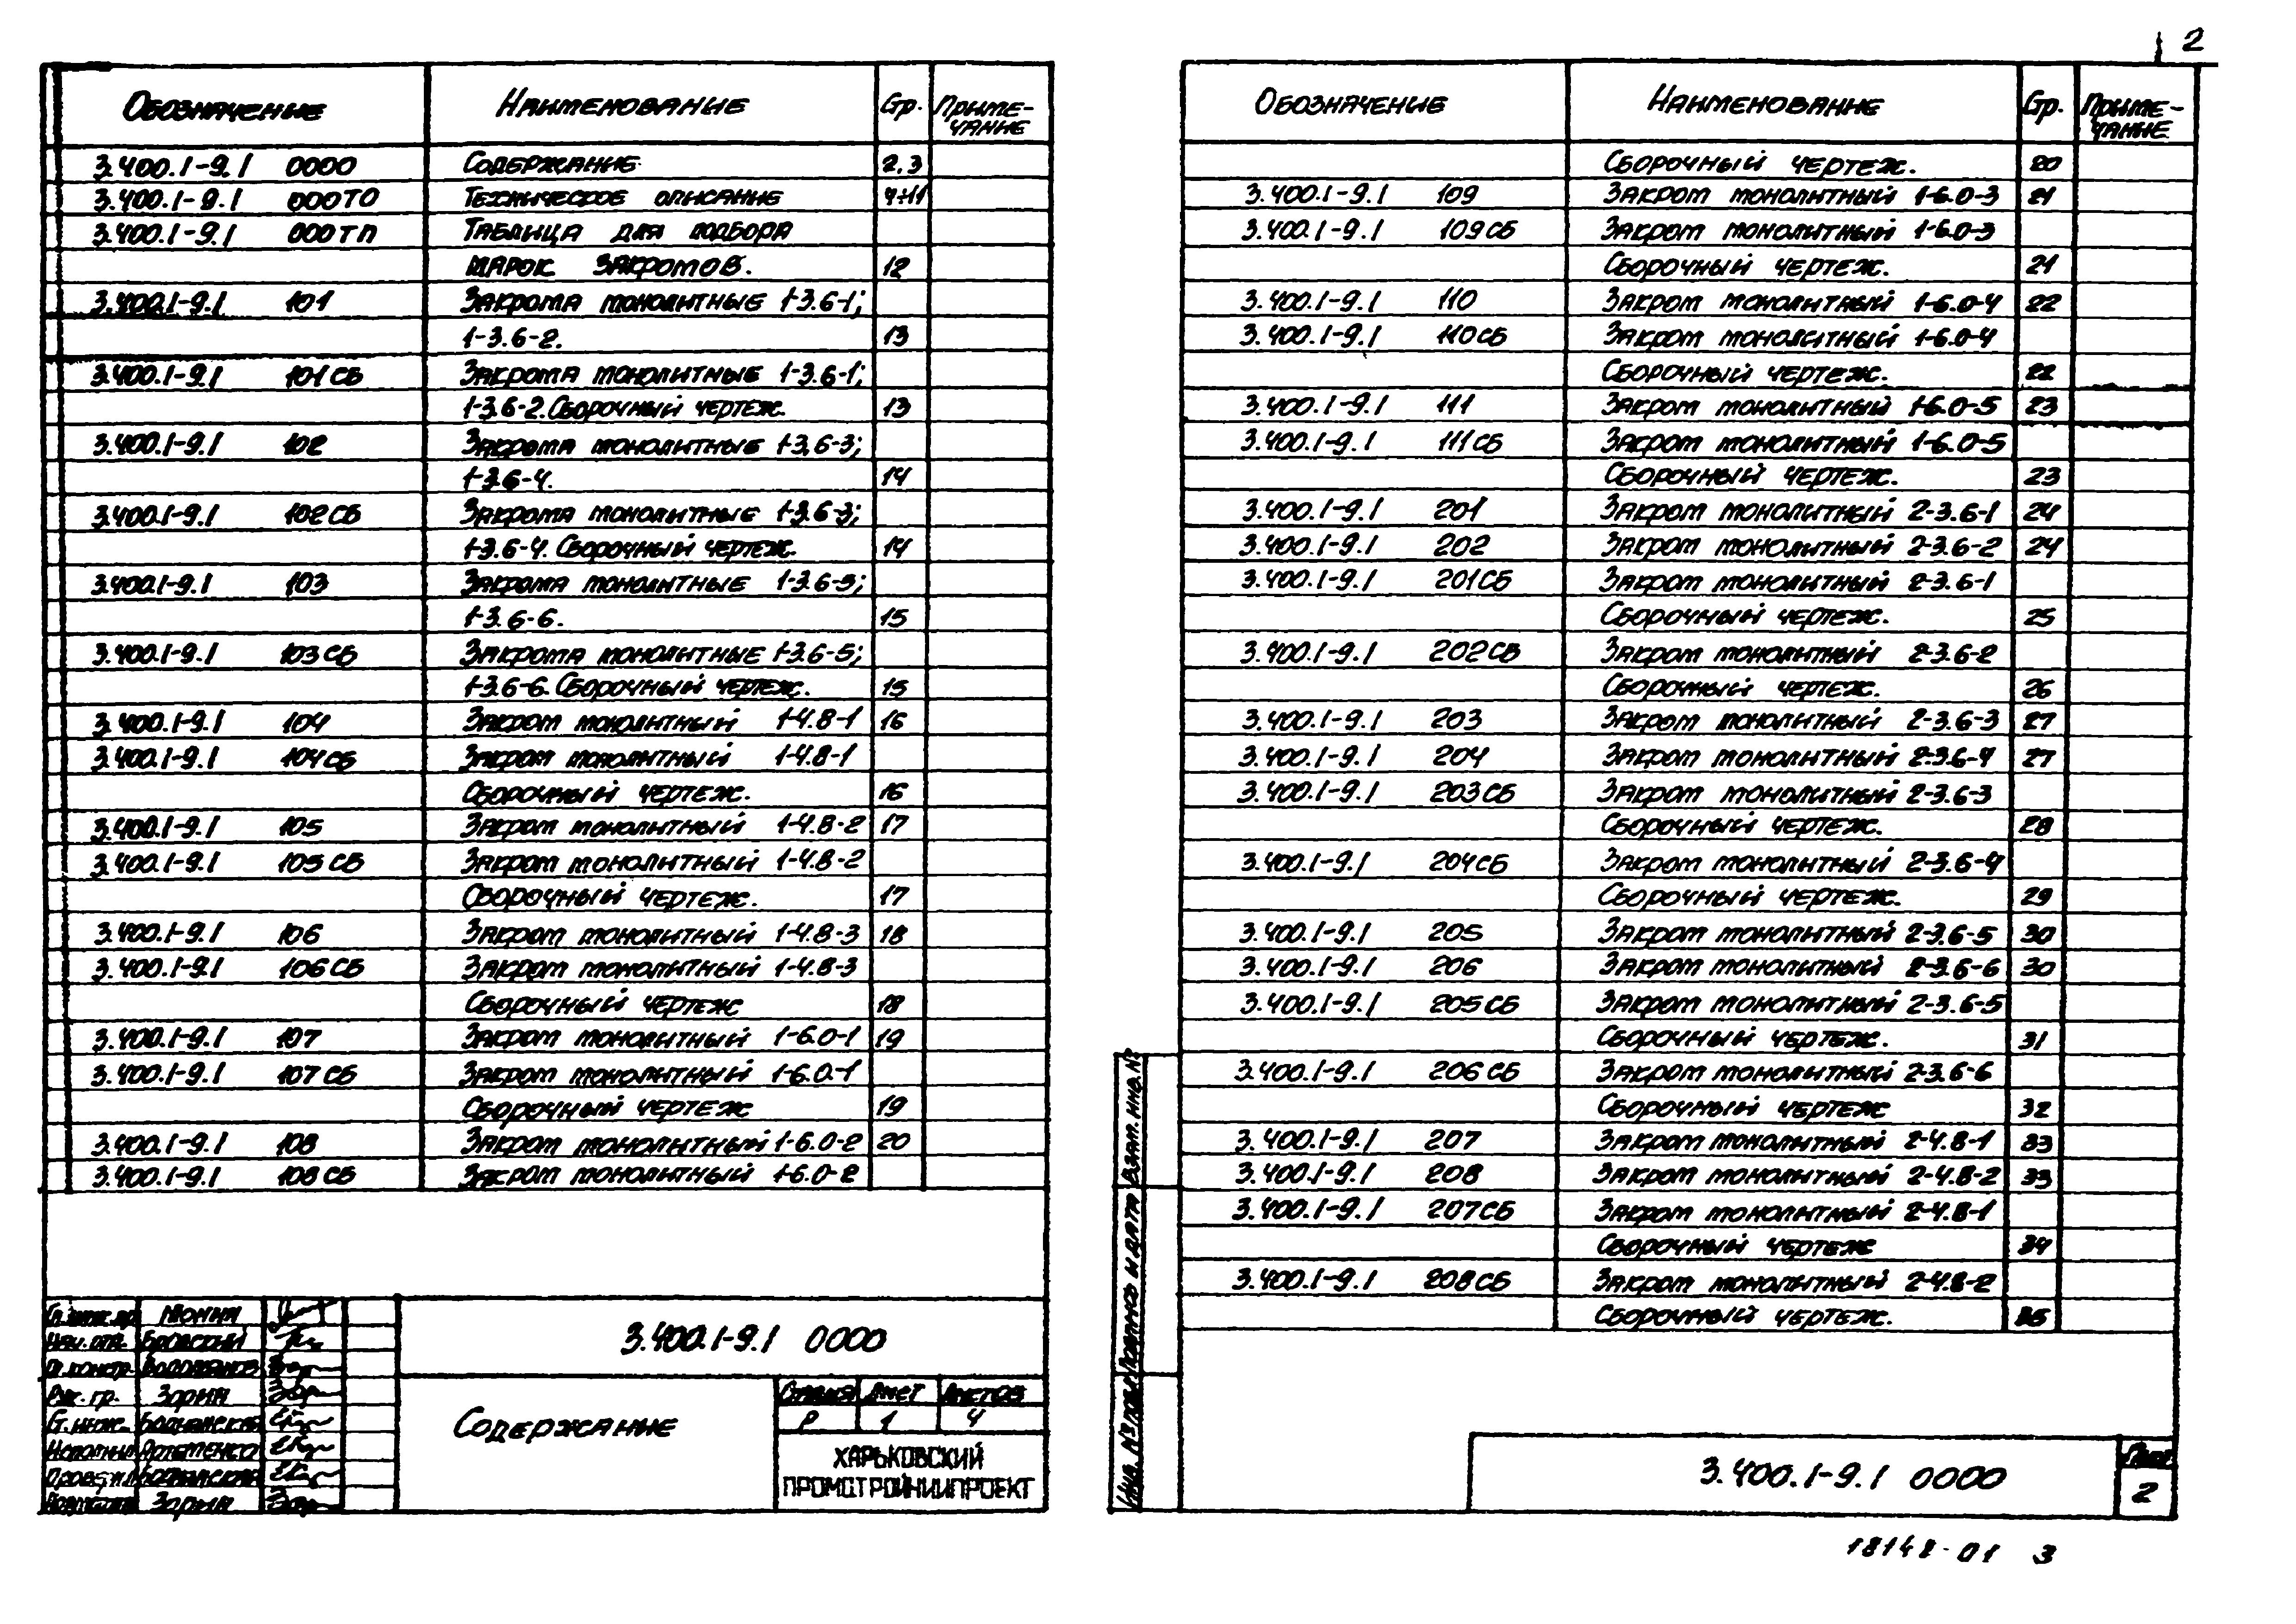 2
Обозначение Наименование Стр. Приме-
чание
3.400.1-9.1 0000 Содержание 2,3
3.400.1-9.1 000ТО Техническое описание 4÷11
3.400.1-9.1 000ТП Таблица для подбора
марок закромов. 12
3.400.1-9.1 101 Закрома монолитные 1-3.6-1;
1-3.6-2. 13
3.400.1-9.1 101СБ Закрома монолитные 1-3.6-1;
1-3.6-2. Сборочный чертеж. 13
3.400.1-9.1 102 Закрома монолитные 1-3.6-3;
1-3.6-4. 14
3.400.1-9.1 102СБ Закрома монолитные 1-3.6-3;
1-3.6-4. Сборочный чертеж. 14
3.400.1-9.1 103 Закрома монолитные 1-3.6-5;
1-3.6-6. 15
3.400.1-9.1 103СБ Закрома монолитные 1-3.6-5;
1-3.6-6. Сборочный чертеж. 15
3.400.1-9.1 104 Закром монолитный 1-4.8-1 16
3.400.1-9.1 104СБ Закром монолитный 1-4.8-1
Сборочный чертеж. 16
3.400.1-9.1 105 Закром монолитный 1-4.8-2 17
3.400.1-9.1 105СБ Закром монолитный 1-4.8-2
Сборочный чертеж. 17
3.400.1-9.1 106 Закром монолитный 1-4.8-3 18
3.400.1-9.1 106СБ Закром монолитный 1-4.8-3
Сборочный чертеж 18
3.400.1-9.1 107 Закром монолитный 1-6.0-1 19
3.400.1-9.1 107СБ Закром монолитный 1-6.0-1
Сборочный чертеж 19
3.400.1-9.1 108 Закром монолитный 1-6.0-2 20
3.400.1-9.1 108СБ Закром монолитный 1-6.0-2
Гл. инж. пр.
Нач. отд. Бровский
Гл. констр. Водолазов
Рук. гр. Зорин
Ст. инж.
Исполнил Артеменко
Проверил
Зорин
3.400.1-9.1 0000
Содержание
Стадия Лист Листов
Р 1 4
ХАРЬКОВСКИЙ
ПРОМСТРОЙНИИПРОЕКТ
Обозначение Наименование Стр. Приме-
чание
Сборочный чертеж. 20
3.400.1-9.1 109 Закром монолитный 1-6.0-3 21
3.400.1-9.1 109СБ Закром монолитный 1-6.0-3
Сборочный чертеж. 21
3.400.1-9.1 110 Закром монолитный 1-6.0-4 22
3.400.1-9.1 110СБ Закром монолитный 1-6.0-4
Сборочный чертеж. 22
3.400.1-9.1 111 Закром монолитный 1-6.0-5 23
3.400.1-9.1 111СБ Закром монолитный 1-6.0-5
Сборочный чертеж. 23
3.400.1-9.1 201 Закром монолитный 2-3.6-1 24
3.400.1-9.1 202 Закром монолитный 2-3.6-2 24
3.400.1-9.1 201СБ Закром монолитный 2-3.6-1
Сборочный чертеж. 25
3.400.1-9.1 202СБ Закром монолитный 2-3.6-2
Сборочный чертеж. 26
3.400.1-9.1 203 Закром монолитный 2-3.6-3 27
3.400.1-9.1 204 Закром монолитный 2-3.6-4 27
3.400.1-9.1 203СБ Закром монолитный 2-3.6-3
Сборочный чертеж. 28
3.400.1-9.1 204СБ Закром монолитный 2-3.6-4
Сборочный чертеж. 29
3.400.1-9.1 205 Закром монолитный 2-3.6-5 30
3.400.1-9.1 206 Закром монолитный 2-3.6-6 30
3.400.1-9.1 205СБ Закром монолитный 2-3.6-5
Сборочный чертеж. 31
3.400.1-9.1 206СБ Закром монолитный 2-3.6-6
Сборочный чертеж 32
3.400.1-9.1 207 Закром монолитный 2-4.8-1 33
3.400.1-9.1 208 Закром монолитный 2-4.8-2 33
3.400.1-9.1 207СБ Закром монолитный 2-4.8-1
Сборочный чертеж 34
3.400.1-9.1 208СБ Закром монолитный 2-4.8-2
Сборочный чертеж. 35
Инв. № подл. Подпись и дата Взам. инв. №
3.400.1-9.1 0000
Лист
2
18142-01 3